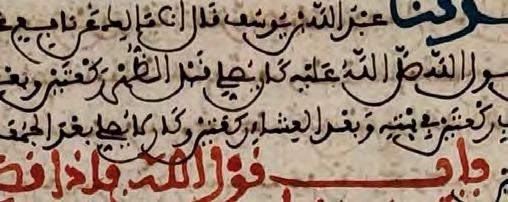 حدثنا عبد الله بن يوسف قال انا مالك عن نافع
رسول الله صلى الله عليه كان يصلي قبل الظهر ركعتين وبعد
ركعتين في بيته وبعد العشاء ركعتين وكان لا يصلي بعد الجمعة
باب قول الله فاذا قضيت